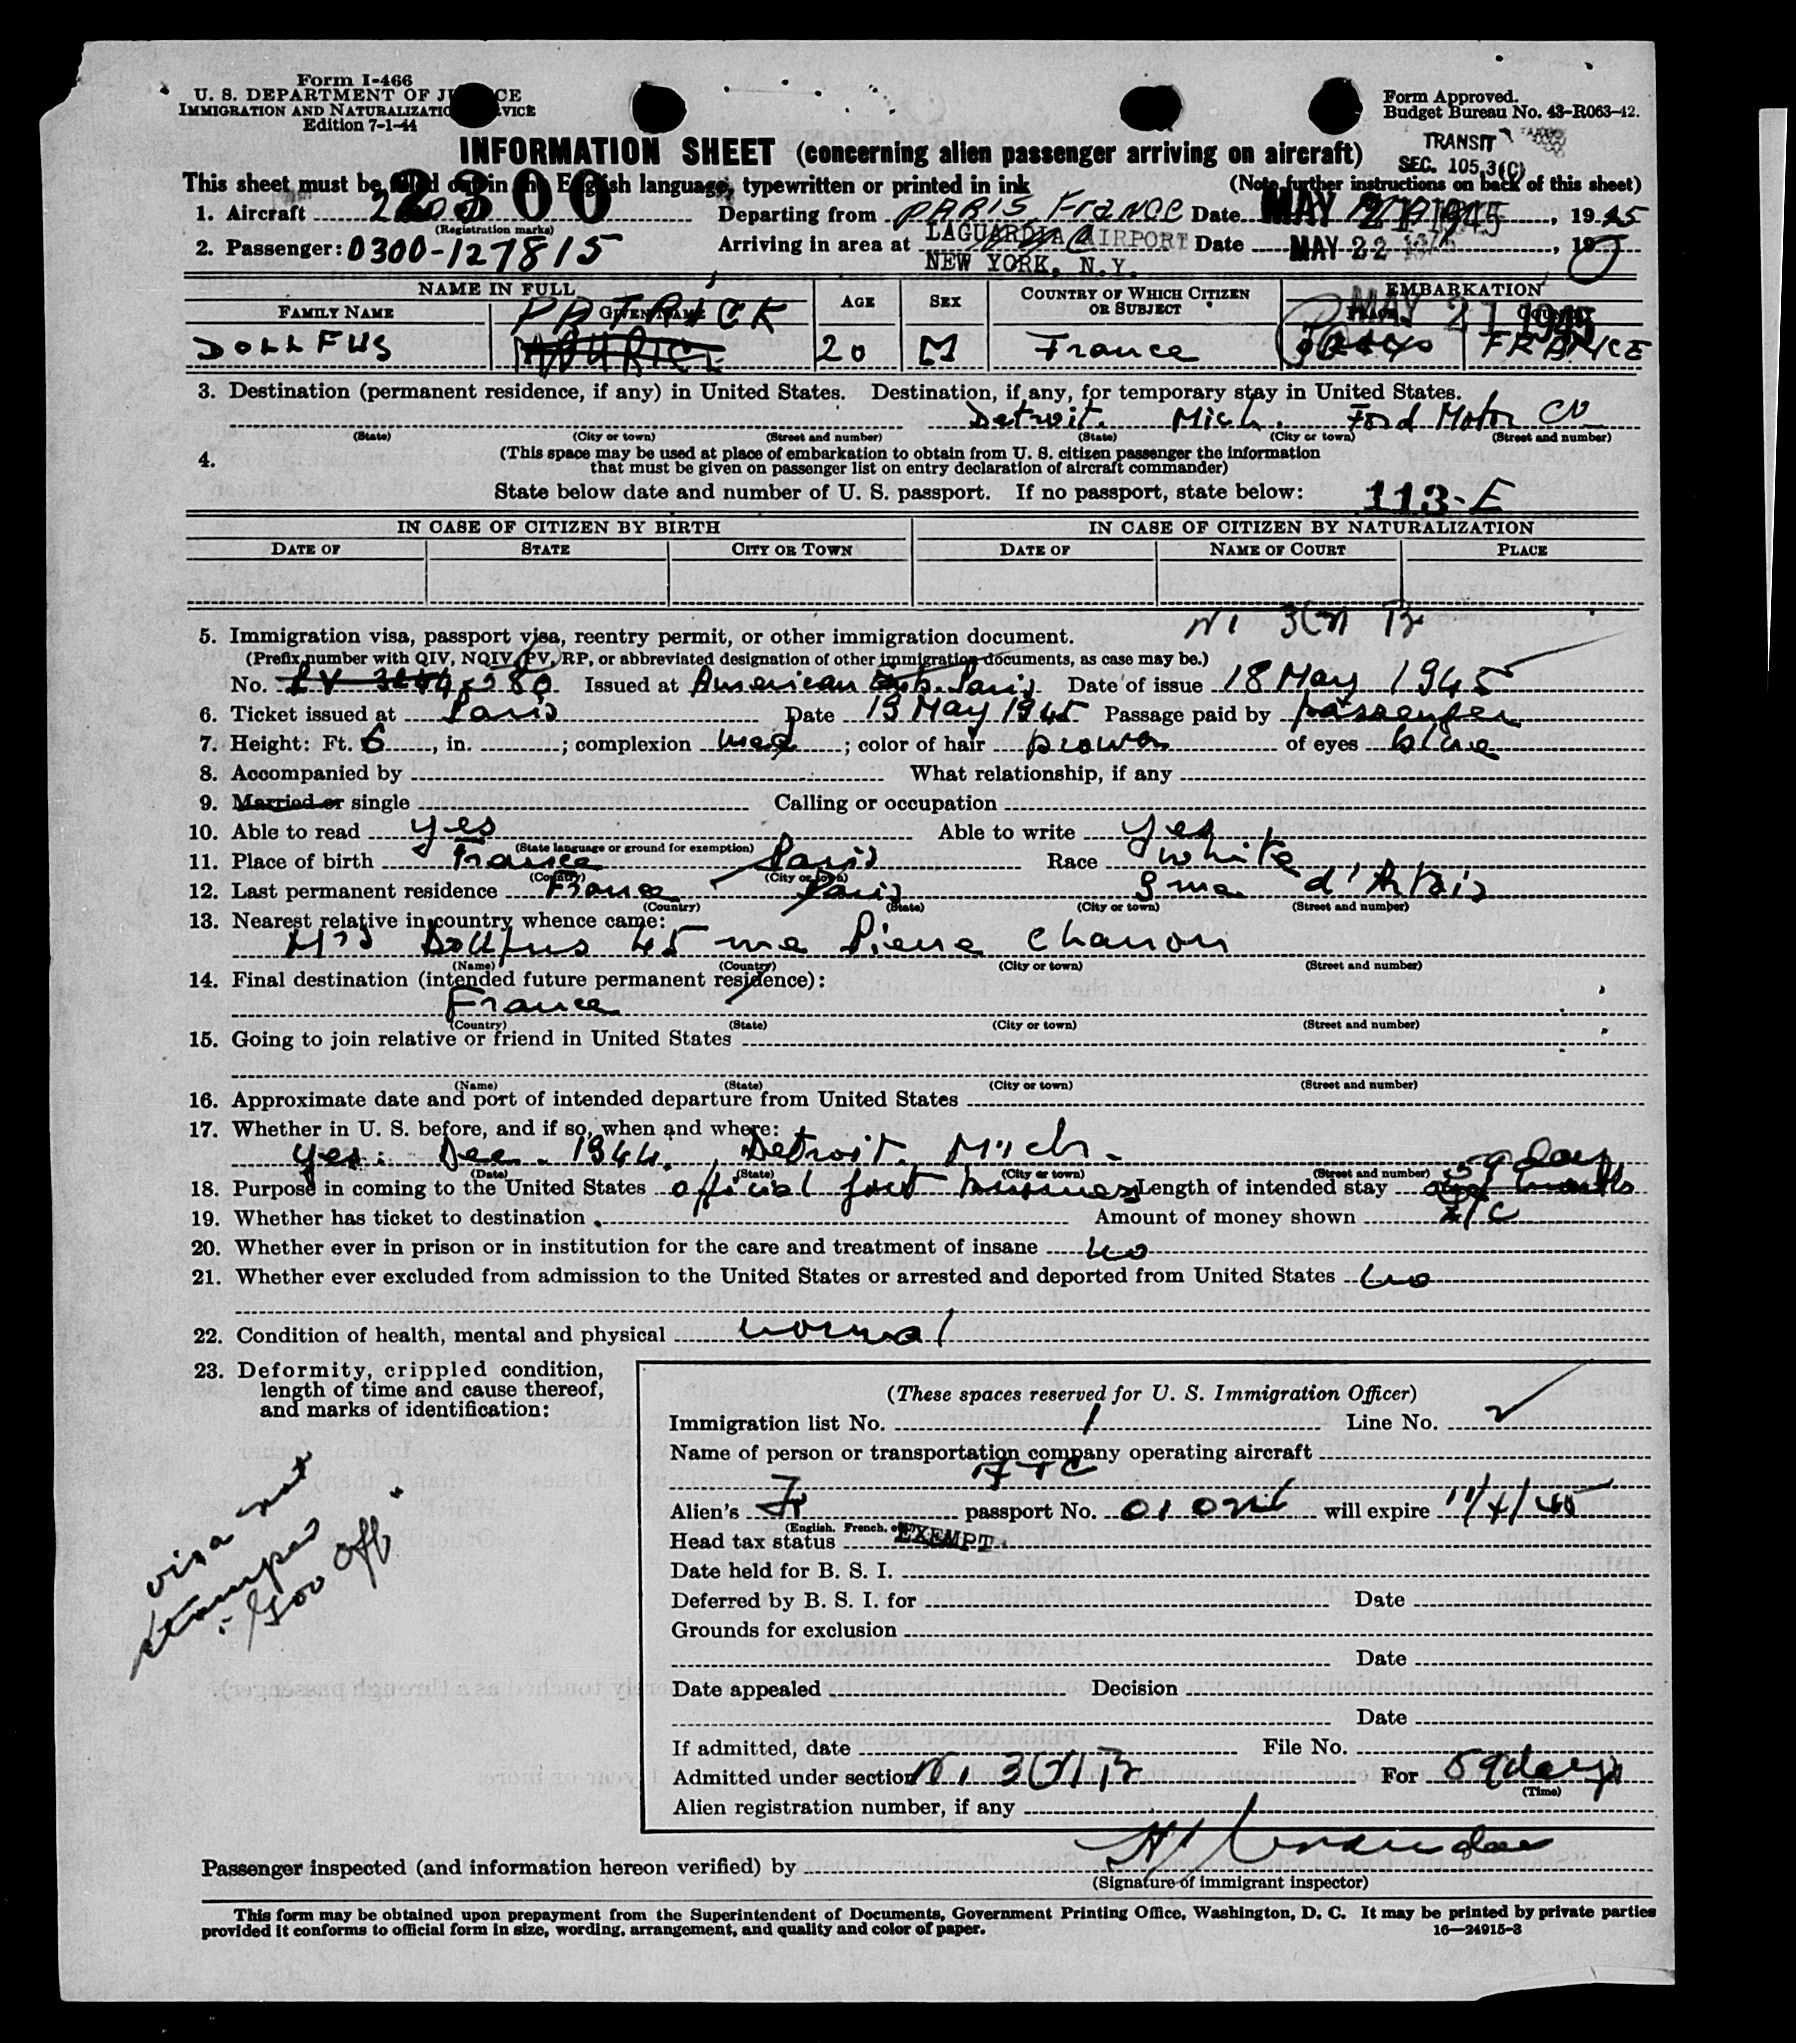 Form I-466
U. S. DEPARTMENT OF JUSTICE
IMMIGRATION AND NATURALIZATION SERVICE
Edition 7-1-44
Form Approved.
Budget Bureau No. 43-R063-42.
TRANSIT
SEC. 105.3(C)
INFORMATION SHEET (concerning alien passenger arriving on aircraft)
This sheet must be filled out in the English language, typewritten or printed in ink (Note further instructions on back of this sheet)
2300
1. Aircraft Departing from PARIS, France Date MAY 21 1945, 1945
(Registration marks)
2. Passenger: 0300-127815 Arriving in area at LAGUARDIA AIRPORT Date MAY 22, 19
NEW YORK, N.Y.
NAME IN FULL AGE SEX COUNTRY OF WHICH CITIZEN OR SUBJECT EMBARKATION
FAMILY NAME GIVEN NAME
MAY 21 1945
PATRICK
DOLLFUS MAURICE 20 M France FRANCE
3. Destination (permanent residence, if any) in United States. Destination, if any, for temporary stay in United States.
Detroit. Mich. Ford Motor Co
(State) (City or town) (Street and number) (State) (City or town) (Street and number)
4. (This space may be used at place of embarkation to obtain from U. S. citizen passenger the information
that must be given on passenger list on entry declaration of aircraft commander)
State below date and number of U. S. passport. If no passport, state below: 113-E
IN CASE OF CITIZEN BY BIRTH IN CASE OF CITIZEN BY NATURALIZATION
DATE OF STATE CITY OR TOWN DATE OF NAME OF COURT PLACE
5. Immigration visa, passport visa, reentry permit, or other immigration document.
(Prefix number with QIV, NQIV, PV, RP, or abbreviated designation of other immigration documents, as case may be.)
No. Issued at American Emb. Paris Date of issue 18 May 1945
6. Ticket issued at Paris Date 19 May 1945 Passage paid by passenger
7. Height: Ft. 6, in. ; complexion med ; color of hair brown of eyes blue
8. Accompanied by What relationship, if any
9. Married or single Calling or occupation
10. Able to read yes Able to write yes
(State language or ground for exemption)
11. Place of birth France Paris Race white
(Country) (City or town)
12. Last permanent residence France Paris 9 rue d'Artois
(Country) (State) (City or town) (Street and number)
13. Nearest relative in country whence came:
Mrs Dollfus 45 rue Pierre Charron
(Name) (Country) (City or town) (Street and number)
14. Final destination (intended future permanent residence):
France
(Country) (State) (City or town) (Street and number)
15. Going to join relative or friend in United States
(Name) (State) (City or town) (Street and number)
16. Approximate date and port of intended departure from United States
17. Whether in U. S. before, and if so, when and where:
yes. Dec. 1944. Detroit. Mich.
(Date) (State) (City or town) (Street and number)
59 days
18. Purpose in coming to the United States official govt business Length of intended stay
19. Whether has ticket to destination Amount of money shown
20. Whether ever in prison or in institution for the care and treatment of insane no
21. Whether ever excluded from admission to the United States or arrested and deported from United States no
22. Condition of health, mental and physical normal
23. Deformity, crippled condition,
length of time and cause thereof,
and marks of identification:
visa not
stamped
Gov off
(These spaces reserved for U. S. Immigration Officer)
Immigration list No. 1 Line No. 2
Name of person or transportation company operating aircraft
ATC
Alien's Fr passport No. will expire 11/4/45
(English, French, etc.)
Head tax status EXEMPT
Date held for B. S. I.
Deferred by B. S. I. for Date
Grounds for exclusion
Date
Date appealed Decision
Date
If admitted, date File No.
Admitted under section For 59 days
(Time)
Alien registration number, if any
Passenger inspected (and information hereon verified) by
(Signature of immigrant inspector)
This form may be obtained upon prepayment from the Superintendent of Documents, Government Printing Office, Washington, D. C. It may be printed by private parties
provided it conforms to official form in size, wording, arrangement, and quality and color of paper. 16—24915-3